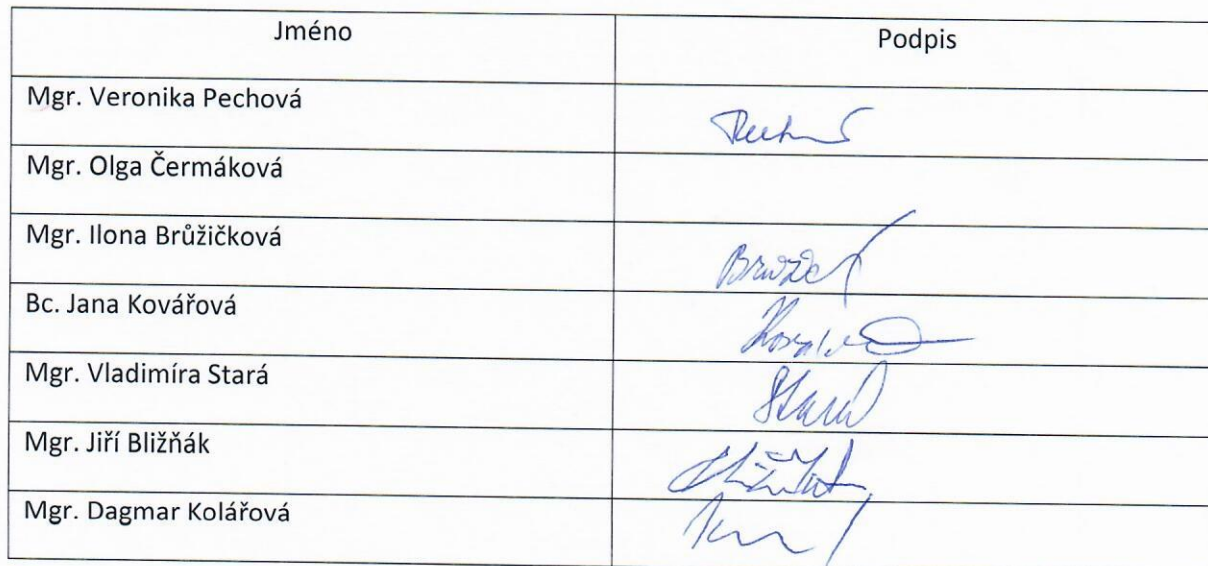 Jméno Podpis
Mgr. Veronika Pechová
Mgr. Olga Čermáková
Mgr. Ilona Brůžičková
Bc. Jana Kovářová
Mgr. Vladimíra Stará Stará
Mgr. Jiří Bližňák
Mgr. Dagmar Kolářová